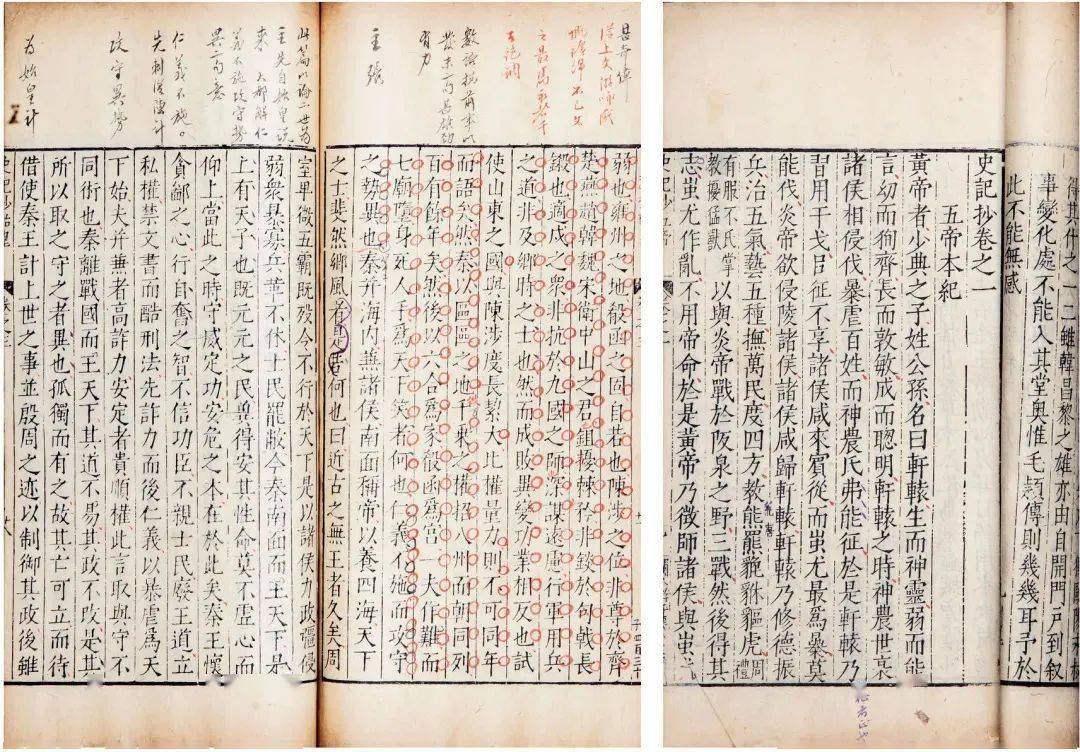 得其什之一二雖韓昌黎之雄亦由自開門戶到叙
事變化處不能入其堂奧惟毛頴傳則幾幾耳予於
此不能無感
史記抄卷之一
五帝本紀
黃帝者少典之子姓公孫名曰軒轅生而神靈弱而能
言幼而徇齊長而敦敏成而聰明軒轅之時神農世衰
諸侯相侵伐暴虐百姓而神農氏弗能征於是軒轅乃
習用干戈以征不享諸侯咸來賓從而蚩尤最爲暴莫
能伐炎帝欲侵陵諸侯諸侯咸歸軒轅軒轅乃修德振
兵治五氣藝五種撫萬民度四方教熊羆貔貅貙虎周禮
有服不氏掌教擾猛獸以與炎帝戰於阪泉之野三戰然後得其
志蚩尤作亂不用帝命於是黃帝乃徵師諸侯與蚩尤
弱也雍州之地殽函之固自若也陳涉之位非尊於齊
楚燕趙韓魏宋衛中山之君鉏耰棘矜非錟於句戟長
鎩也適戍之衆非抗於九國之師深謀遠慮行軍用兵
之道非及鄉時之士也然而成敗異變功業相反也試
使山東之國與陳涉度長絜大比權量力則不可同年
而語矣然秦以區區之地千乘之權招八州而朝同列
百有餘年矣然後以六合爲家殽函爲宮一夫作難而
七廟墮身死人手爲天下笑者何也仁義不施而攻守
之勢異也秦并海內兼諸侯南面稱帝以養四海天下
之士斐然鄉風若是者何也曰近古之無王者久矣周
主張
有力
室卑微五霸既歿令不行於天下是以諸侯力政彊侵
弱衆暴寡兵革不休士民罷敝今秦南面而王天下是
上有天子也既元元之民兾得安其性命莫不虛心而
仰上當此之時守威定功安危之本在於此矣秦王懷
貪鄙之心行自奮之智不信功臣不親士民廢王道立
私權禁文書而酷刑法先詐力而後仁義以暴虐爲天
下始夫并兼者高詐力安定者貴順權此言取與守不
同術也秦離戰國而王天下其道不易其政不改是其
所以取之守之者異也孤獨而有之故其亡可立而待
借使秦王計上世之事並殷周之迹以制御其政後雖
仁義不施。
攻守異勢
為始皇計